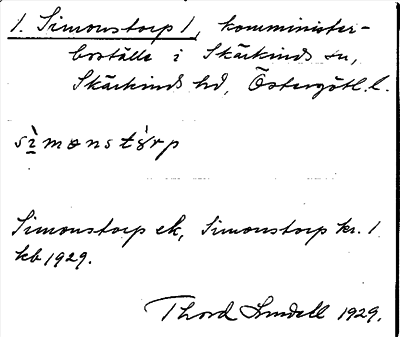 1. Simonstorp 1, komminister-
boställe i Skärkinds sn,
Skärkinds hd, Östergötl. l.
sìmonstòrp
Simonstorp ek, Simonstorp kr. 1
kb 1929.
Thord Lindell 1929.